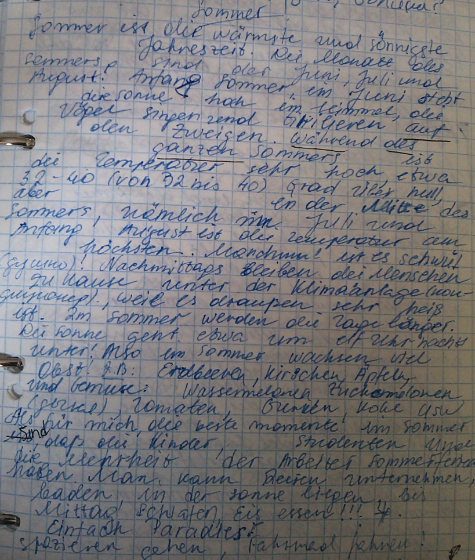 Sommer
Sommer ist die wärmste und sonnigste
Jahreszeit. Die Monate des
Sommers sind der Juni, Juli und
August. Anfang Sommer, im Juni steht
die Sonne hoch im Himmel, die
Vögel singen und trilieren auf
den Zweigen. Während des
ganzen Sommers ist
die Temperatur sehr hoch, etwa
32-40 (von 32 bis 40) Grad
aber in der Mitte des
Sommers, nämlich im Juli und
Anfang August ist die Temperatur am
höchsten. Manchmal ist es schwül
(душно)! Nachmittags bleiben die Menschen
zu Hause unter der Klimaanlage (кон-
диционер), weil es draußen sehr heiß
ist. Im Sommer werden die Tage länger.
Die Sonne geht etwa um elf Uhr nachts
unter. Also im Sommer wachsen viel
Obst z.B: Erdbeeren, Kirschen, Äpfeln
und Gemüse: Wassermelonen, Zuckermelonen
Tomaten, Gurken, Kohl usw
Für mich, die beste momente im Sommer
sind
daß die Kinder, Studenten und
die Mehrheit der Arbeiter Sommerferien
haben. Man kann Reisen unternehmen,
baden in der Sonne liegen bis
Mittag schlafen, Eis essen!!!
Einfach Paradies!
spazieren gehen, Fahrrad fahren!